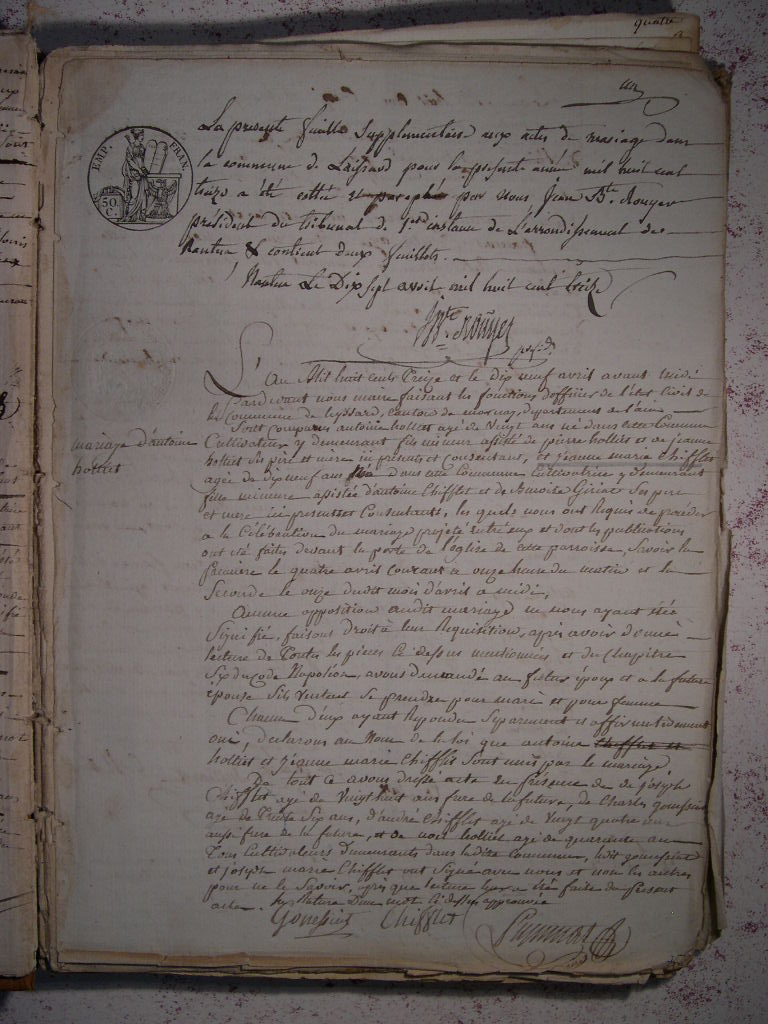 quatre
un
EMP. FRAN.
50. C.
La presente feuille Supplementaire aux actes de mariage dans
la commune de Leissard pour la presente année mil huit cent
treize a été cottée et paraphée par nous Jean Bte. Rouyer
président du tribunal de 1ere instance de L'arrondissement de
Nantua & contient deux feuillets.
Nantua Le Dix sept avril mil huit cent treize
JBte. Rouyer
presidt.
L'an Mil huit cents Treize et le dix neuf avril avant midi
Pardevant nous maire faisant les fonctions d'officier de l'état civil de
la Commune de leyssard, Canton de mornay, departement de l'ain
Sont comparus antoine hottiet agé de Vingt ans né dans cette Commune
Cultivateur y demeurant fils mineur assisté de pierre hottiet et de jeanne
hottiet ses pere et mere ici présents et Consentant, et jeanne marie Chifflet
agée de dix neuf ans née dans cette Commune Cultivatrice y demeurant
fille mineure assistée d'antoine Chifflet et de Giriat Ses pere
et mere ici presents et Consentants, les quels nous ont Requis de proceder
a la Célébration du mariage projeté entre eux et dont les publications
ont été faites devant la porte de l'église de cette parroisse, Savoir la
Premiere le quatre avril Courant a onze heure du matin et la
Seconde le onze dudit mois d'avril a midi,
Aucune opposition audit mariage ne nous ayant été
Signifiée, faisant droit à leur Requisition, après avoir donné
lecture de Toutes les pieces Ci dessus mentionnées et du Chapitre
Six du Code Napoléon, avons demandé au futur époux et a la future
épouse S'ils veulent Se prendre pour mari et pour femme
Chacun d'eux ayant Repondu Separement et affirmativement
oui, declarons au Nom de la loi que antoine Chifflet et
hottiet et jeanne marie Chifflet Sont unis par le mariage
De tout Ce avons dressé acte En présence de de joseph
Chifflet agé de Vingt huit ans frere de la future, de Charles gonessiat
agé de Trente Six ans, d'andré Chifflet agé de Vingt quatre ans
aussi frere de la future, et de hottiet agé de quarante ans
Tous Cultivateurs demeurants dans ladite Commune, ledit gonessiat
et joseph marie Chifflet ont Signé avec nous et non les autres
pour ne le Savoir, après que lecture leur a été faite du present
acte. La Rature d'un mot Ci dessus approuvée
Gonessiat Chifflet
mariage d'antoine
hottiet